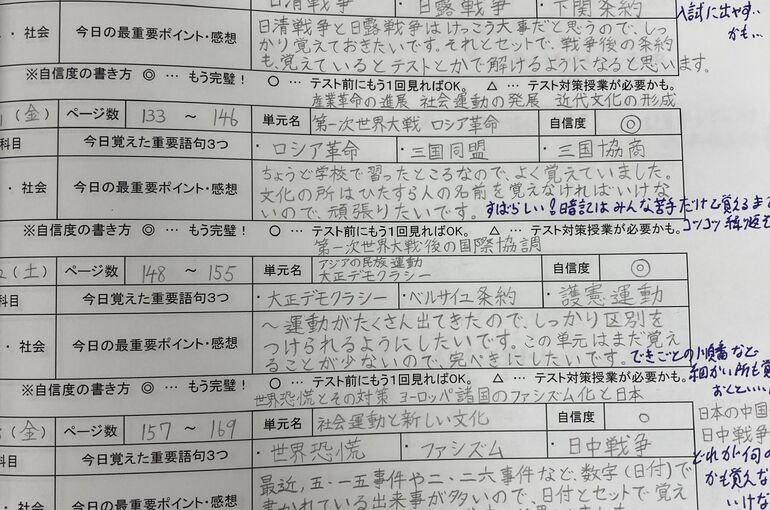 日清戦争 ・日露戦争 ・下関条約
入試に出やす..
かも...
・社会 今日の最重要ポイント・感想 日清戦争と日露戦争はけっこう大事だと思うので、しっ
かり覚えておきたいです。それとセットで、戦争後の条約
も、覚えているとテストとかで解けるようになると思います。
※自信度の書き方 ◎ … もう完璧! ○ … テスト前にもう1回見ればOK。 △ … テスト対策授業が必要かも。
産業革命の進展 社会運動の発展 近代文化の形成
(金) ページ数 133 ～ 146 単元名 第一次世界大戦 ロシア革命 自信度 ◎
科目 今日覚えた重要語句3つ ・ロシア革命 ・三国同盟 ・三国協商
・社会 今日の最重要ポイント・感想 ちょうど学校で習ったところなので、よく覚えていました。
文化の所はひたすら人の名前を覚えなければいけな
いので、頑張りたいです。 すばらしい!暗記はみんな苦手だけど覚えるま
コツコツ
※自信度の書き方 ◎ … もう完璧! ○ … テスト前にもう1回見ればOK。 △ … テスト対策授業が必要かも。
第一次世界大戦後の国際協調
アジアの民族運動
(土) ページ数 148 ～ 155 単元名 大正デモクラシー 自信度 ◎
科目 今日覚えた重要語句3つ ・大正デモクラシー ・ベルサイユ条約 ・護憲運動
・社会 今日の最重要ポイント・感想 ～運動がたくさん出てきたので、しっかり区別を
つけられるようにしたいです。この単元はまだ覚え
ることが少ないので、完ぺきにしたいです。 できごとの順番など
細かい所も覚
おくといい
※自信度の書き方 ◎ … もう完璧! ○ … テスト前にもう1回見ればOK。 △ … テスト対策授業が必要かも。
世界恐慌とその対策 ヨーロッパ諸国のファシズム化と日本
(金) ページ数 157 ～ 169 単元名 社会運動と新しい文化 自信度 ○
科目 今日覚えた重要語句3つ ・世界恐慌 ・ファシズム ・日中戦争
日本の中国
日中戦争
どれが何の
かも覚えな
いけな
・社会 今日の最重要ポイント・感想 最近、五・一五事件や二・二六事件など、数字(日付)で
書かれている出来事が多いので、日付とセットで覚え